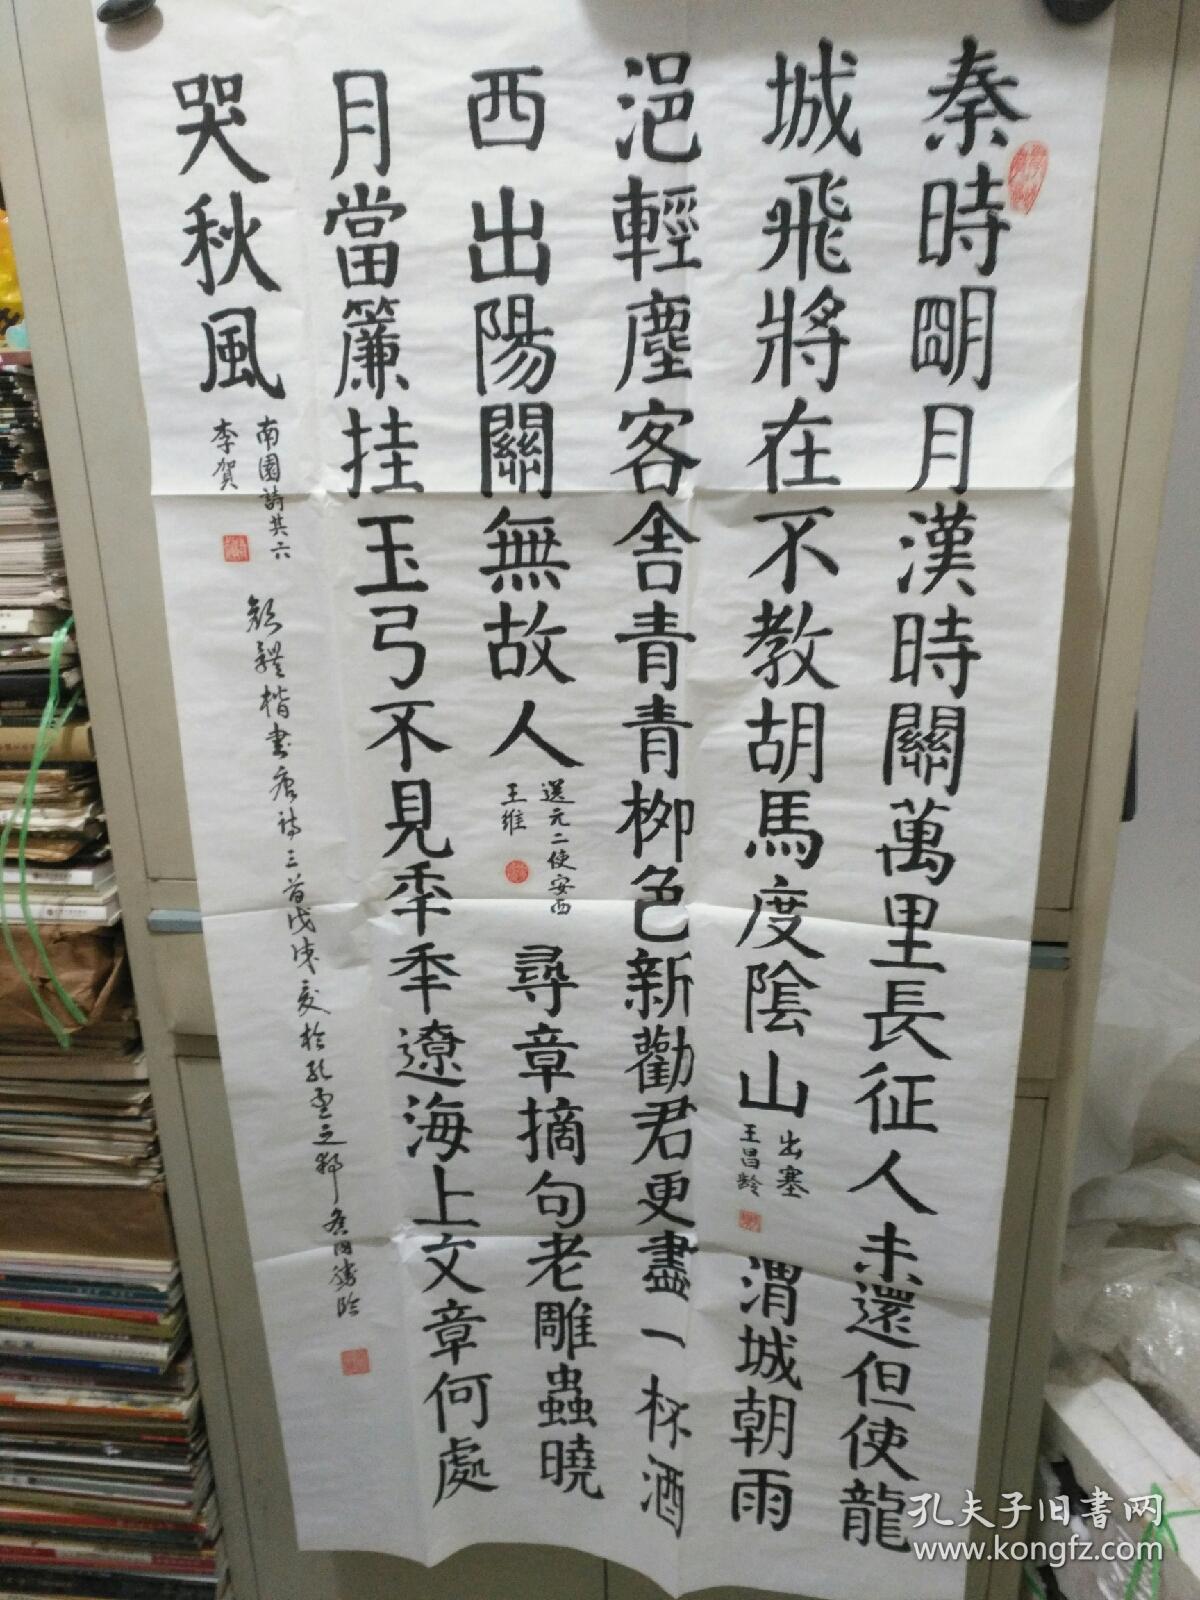 秦時明月漢時關萬里長征人未還但使龍
城飛將在不教胡馬度陰山
出塞
王昌齡
渭城朝雨
浥輕塵客舍青青柳色新勸君更盡一杯酒
西出陽關無故人
送元二使安西
王維
尋章摘句老雕蟲曉
月當簾挂玉弓不見年年遼海上文章何處
哭秋風
南園詩其六
李賀
顏體楷書唐詩三首戊戌夏於孔孟之鄉
孔夫子旧書网
www.kongfz.com